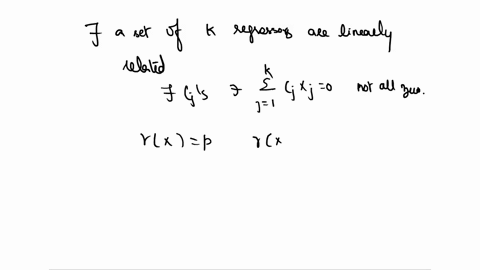 If a set of k regressors are linearly
related
∃ Cj's ∋ k∑j=1 Cj xj = 0 not all zero.
r(x) = p r(x